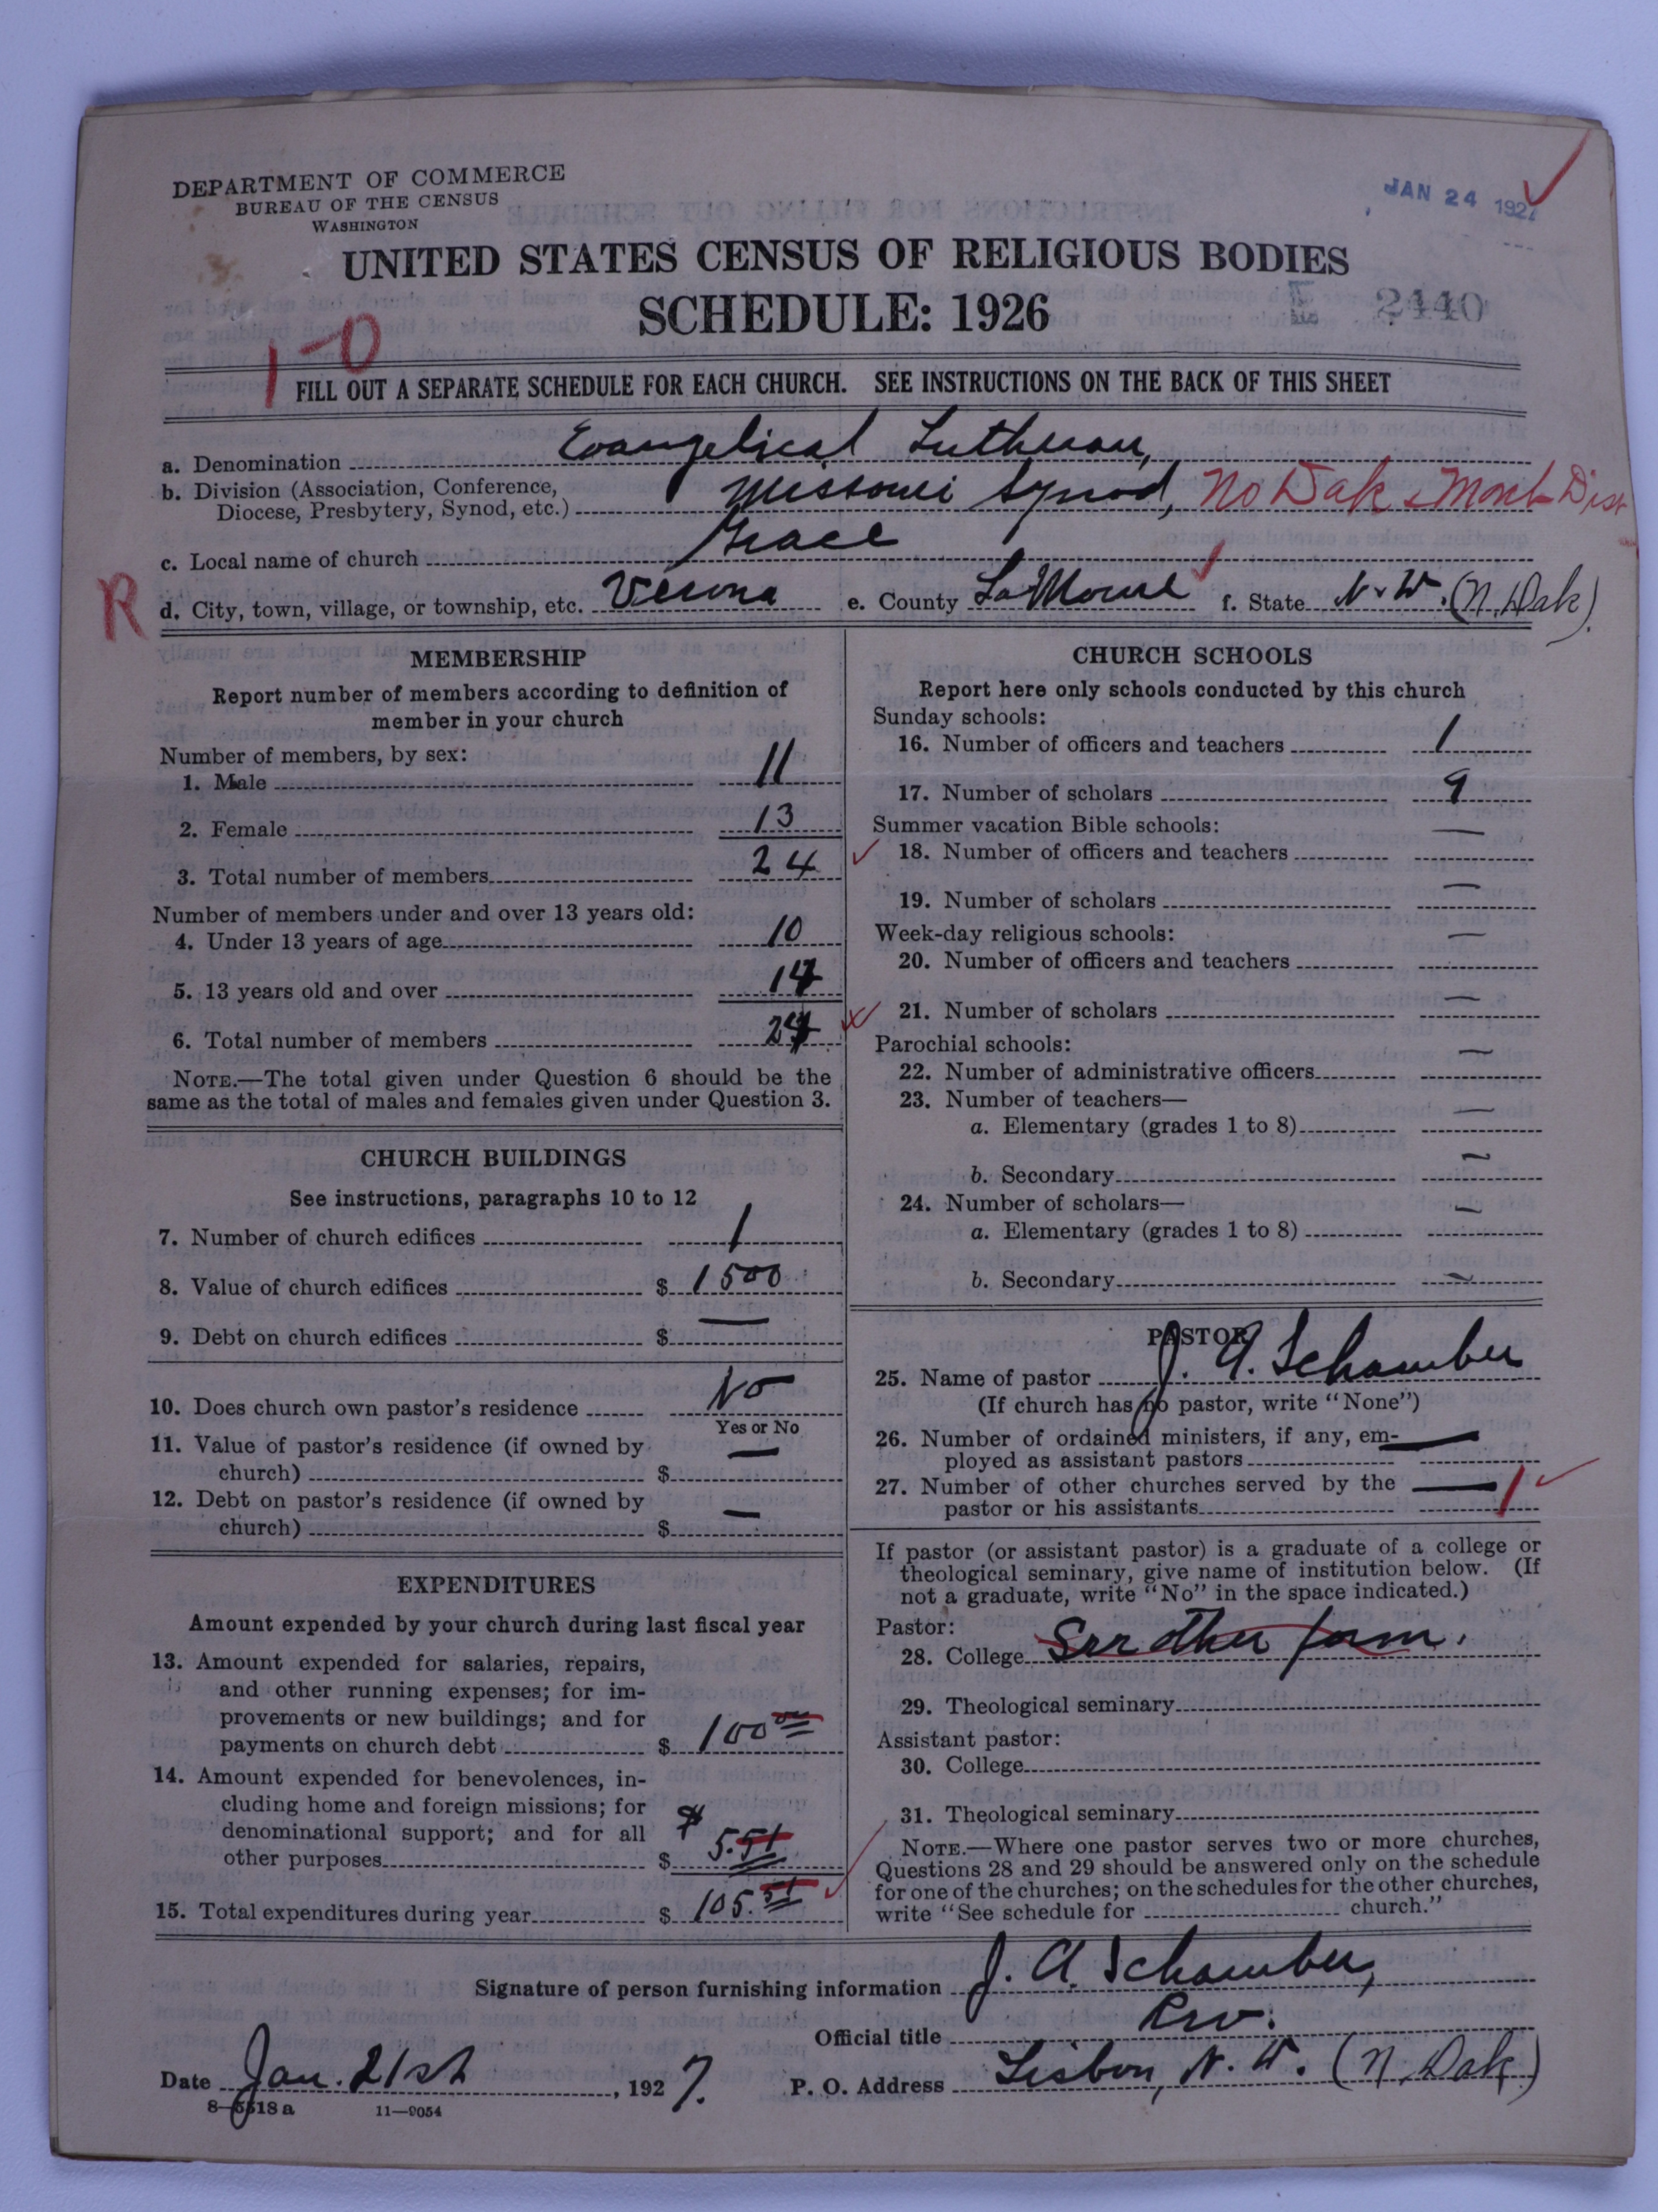 DEPARTMENT OF COMMERCE
BUREAU OF THE CENSUS
WASHINGTON
JAN 24 192
UNITED STATES CENSUS OF RELIGIOUS BODIES
SCHEDULE: 1926
2440
1-0
FILL OUT A SEPARATE SCHEDULE FOR EACH CHURCH. SEE INSTRUCTIONS ON THE BACK OF THIS SHEET
a. Denomination Evangelical Lutheran,
b. Division (Association, Conference, Diocese, Presbytery, Synod, etc.) Missouri Synod, No Dak & Mont Dist
c. Local name of church Grace
R
d. City, town, village, or township, etc. Verona e. County LaMoure f. State N. D. (N. Dak).
MEMBERSHIP
Report number of members according to definition of
member in your church
Number of members, by sex:
1. Male 11
2. Female 13
3. Total number of members 24
Number of members under and over 13 years old:
4. Under 13 years of age 10
5. 13 years old and over 14
6. Total number of members 24
NOTE.—The total given under Question 6 should be the
same as the total of males and females given under Question 3.
CHURCH BUILDINGS
See instructions, paragraphs 10 to 12
7. Number of church edifices 1
8. Value of church edifices $ 1500
9. Debt on church edifices $ —
10. Does church own pastor's residence No
Yes or No
11. Value of pastor's residence (if owned by
church) $ —
12. Debt on pastor's residence (if owned by
church) $ —
EXPENDITURES
Amount expended by your church during last fiscal year
13. Amount expended for salaries, repairs,
and other running expenses; for im-
provements or new buildings; and for
payments on church debt $ 100 00
14. Amount expended for benevolences, in-
cluding home and foreign missions; for
denominational support; and for all
other purposes $ $ 5.51
15. Total expenditures during year $ 105.51
CHURCH SCHOOLS
Report here only schools conducted by this church
Sunday schools:
16. Number of officers and teachers 1
17. Number of scholars 9
Summer vacation Bible schools:
18. Number of officers and teachers —
19. Number of scholars —
Week-day religious schools:
20. Number of officers and teachers —
21. Number of scholars —
Parochial schools:
22. Number of administrative officers —
23. Number of teachers—
a. Elementary (grades 1 to 8) —
b. Secondary —
24. Number of scholars—
a. Elementary (grades 1 to 8) —
b. Secondary —
PASTOR
25. Name of pastor J. A. Schamber
(If church has no pastor, write "None")
26. Number of ordained ministers, if any, em-
ployed as assistant pastors —
27. Number of other churches served by the
pastor or his assistants — 1
If pastor (or assistant pastor) is a graduate of a college or
theological seminary, give name of institution below. (If
not a graduate, write "No" in the space indicated.)
Pastor:
28. College See other form.
29. Theological seminary
Assistant pastor:
30. College
31. Theological seminary
NOTE.—Where one pastor serves two or more churches,
Questions 28 and 29 should be answered only on the schedule
for one of the churches; on the schedules for the other churches,
write "See schedule for church."
Signature of person furnishing information J. A. Schamber,
Official title Rev.
Date Jan. 21st, 1927. P. O. Address Lisbon, N. D. (N. Dak)
8—5518a 11—9054